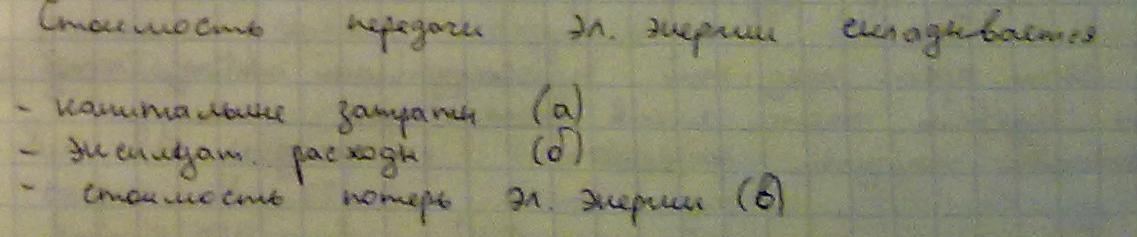 Стоимость передачи эл. энергии складывается
- капитальные затраты (а)
- эксплуат. расходы (б)
- стоимость потерь эл. энергии (в)